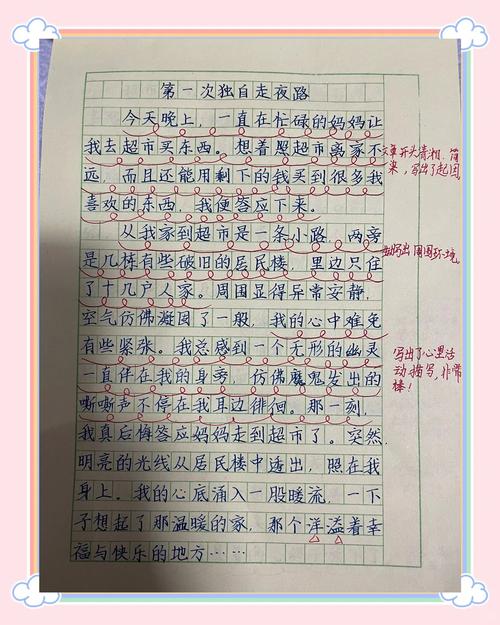 第一次独自走夜路
今天晚上，一直在忙碌的妈妈让
我去超市买东西。想着照超市离家不
远，而且还能用剩下的钱买到很多我
喜欢的东西，我便答应下来。
从我家到超市是一条小路，两旁
是几栋有些破旧的居民楼，里边只住
了十几户人家。周围显得异常安静，
空气仿佛凝固了一般，我的心中难免
有些紧张。我总感到一个无形的幽灵
一直伴在我的身旁，仿佛魔鬼发出的
嘶嘶声不停在我耳边徘徊。那一刻，
我真后悔答应妈妈走到超市了。突然
明亮的光线从居民楼中透出，照在我
身上。我的心底涌入一股暖流，一下
子想起了那温暖的家，那个洋溢着幸
福与快乐的地方……
文章开头亮相，简
洁，写出了起因
写出周围环境
写出了心里活
动描写，非常
棒！